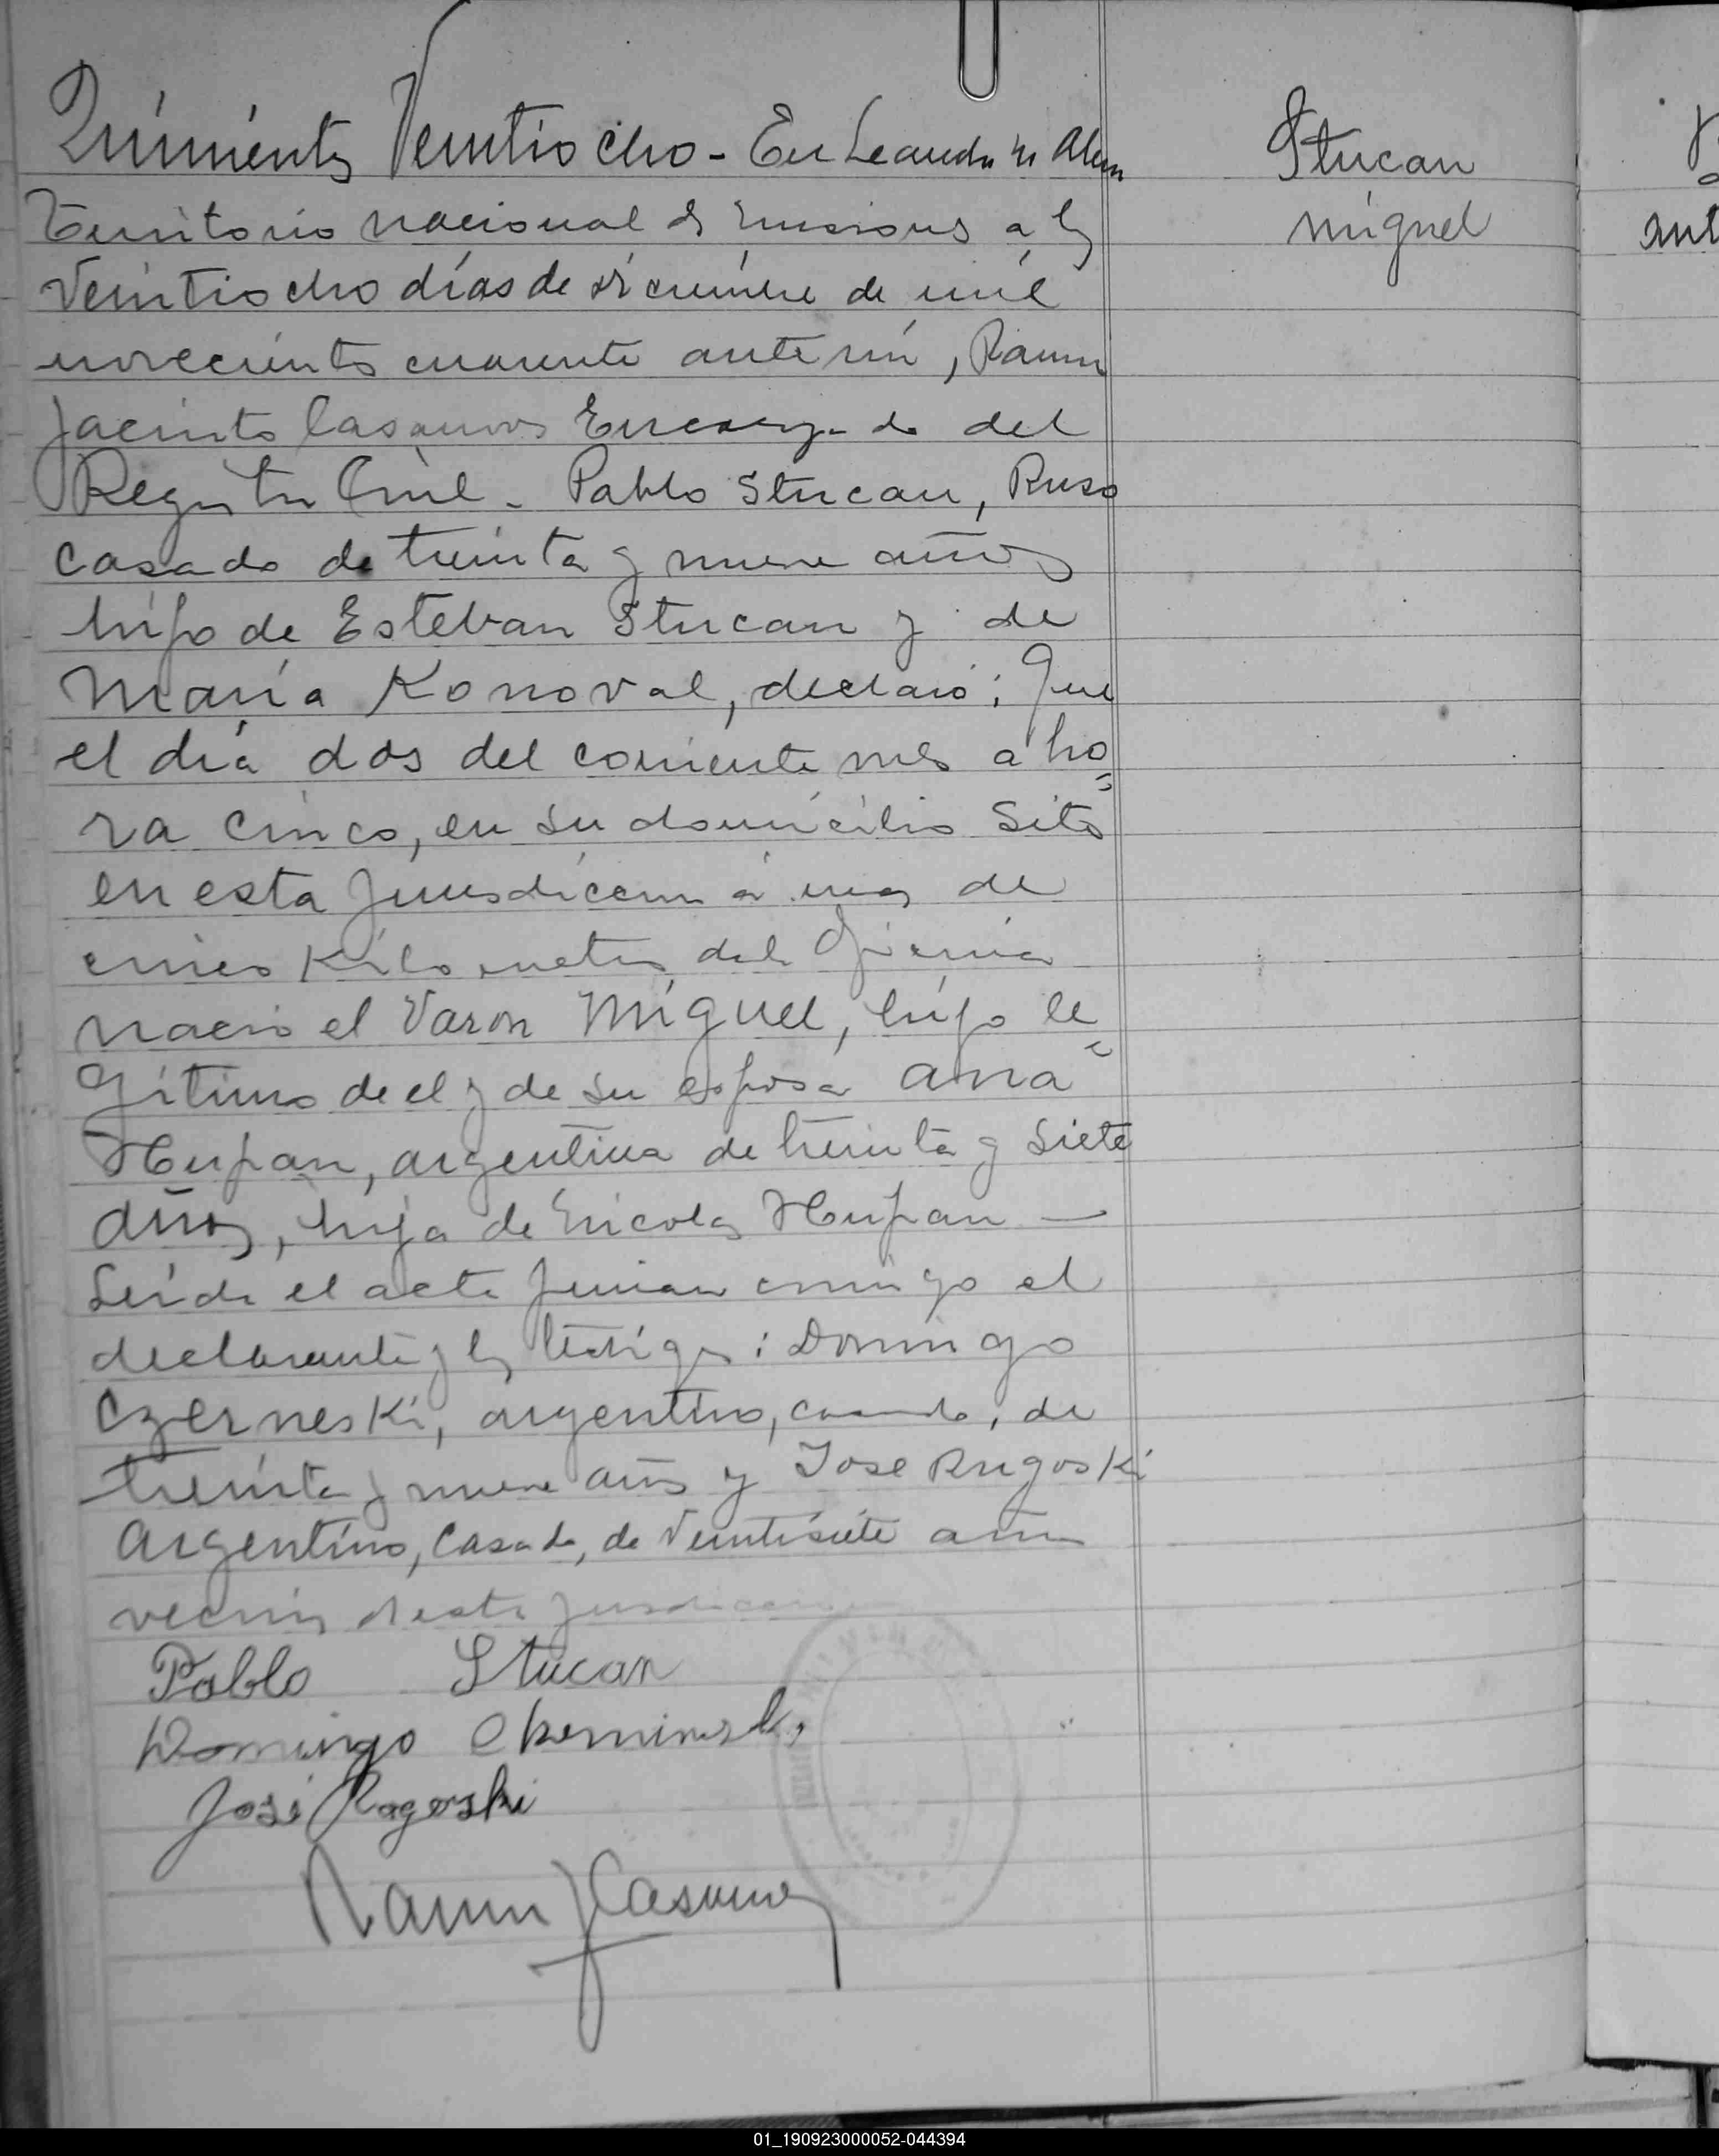 Quinientos Veintiocho - En Leandro N Alem
Territorio nacional de Misiones a los
Veintiocho días de diciembre de mil
novecientos cuarenta ante mí, Ramon
Jacinto Casanova Encargado del
Registro Civil - Pablo Stucan, Ruso
casado de treinta y nueve años
hijo de Esteban Stucan y de
María Konoval, declaró: Que
el día dos del corriente mes a ho=
ra cinco, en su domicilio sito
en esta Jurisdiccion a mas de
cinco Kilometros de la Oficina
nacio el Varon Miguel, hijo le=
gitimo de el y de su esposa Ana
Hupan, argentina de treinta y siete
años, hija de Nicolas Hupan —
Leida el acta firman conmigo el
declarante y los testigos: Domingo
Czerneski, argentino, casado, de
treinta y nueve años y Jose Rugoski
Argentino, Casado, de Veintisiete años
vecinos de esta jurisdiccion
Pablo Stucan
Domingo
José Rogoski
Ramon J Casanova
Stucan
Miguel
01_190923000052-044394